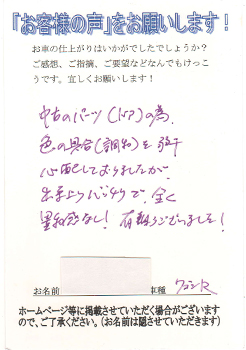 「お客様の声」をお願いします！
お車の仕上がりはいかがでしたでしょうか？
ご感想、ご指摘、ご要望などなんでもけっこ
うです。宜しくお願いします！
中古のパーツ（ドア）の為、
色の具合（調和）を
心配しておりましたが、
出来上りバッチリで、全く
違和感なし！有難うございました！
お名前
車種 ワゴンR
ホームページ等に掲載させていただく場合がございます
ので、ご了承ください。（お名前は隠させていただきます）